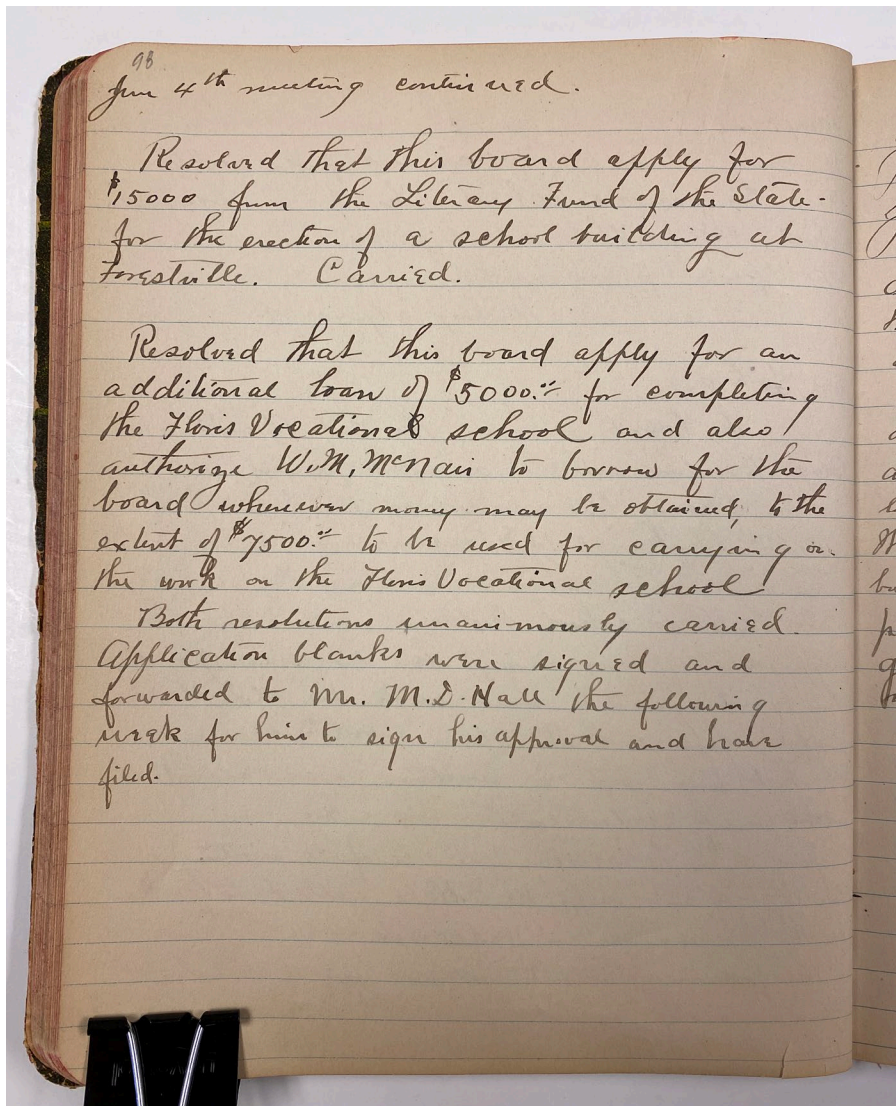 98
Jun 4th meeting continued.
Resolved that this board apply for
$15000 from the Literary Fund of the State
for the erection of a school building at
Forestville. Carried.
Resolved that this board apply for an
additional loan of $5000.00 for completing
the Floris Vocational school and also
authorize W.M. McNair to borrow for the
board whenever money may be obtained, to the
extent of $7500.00 to be used for carrying on
the work on the Floris Vocational school
Both resolutions unanimously carried.
Application blanks were signed and
forwarded to Mr. M.D. Hall the following
week for him to sign his approval and have
filed.